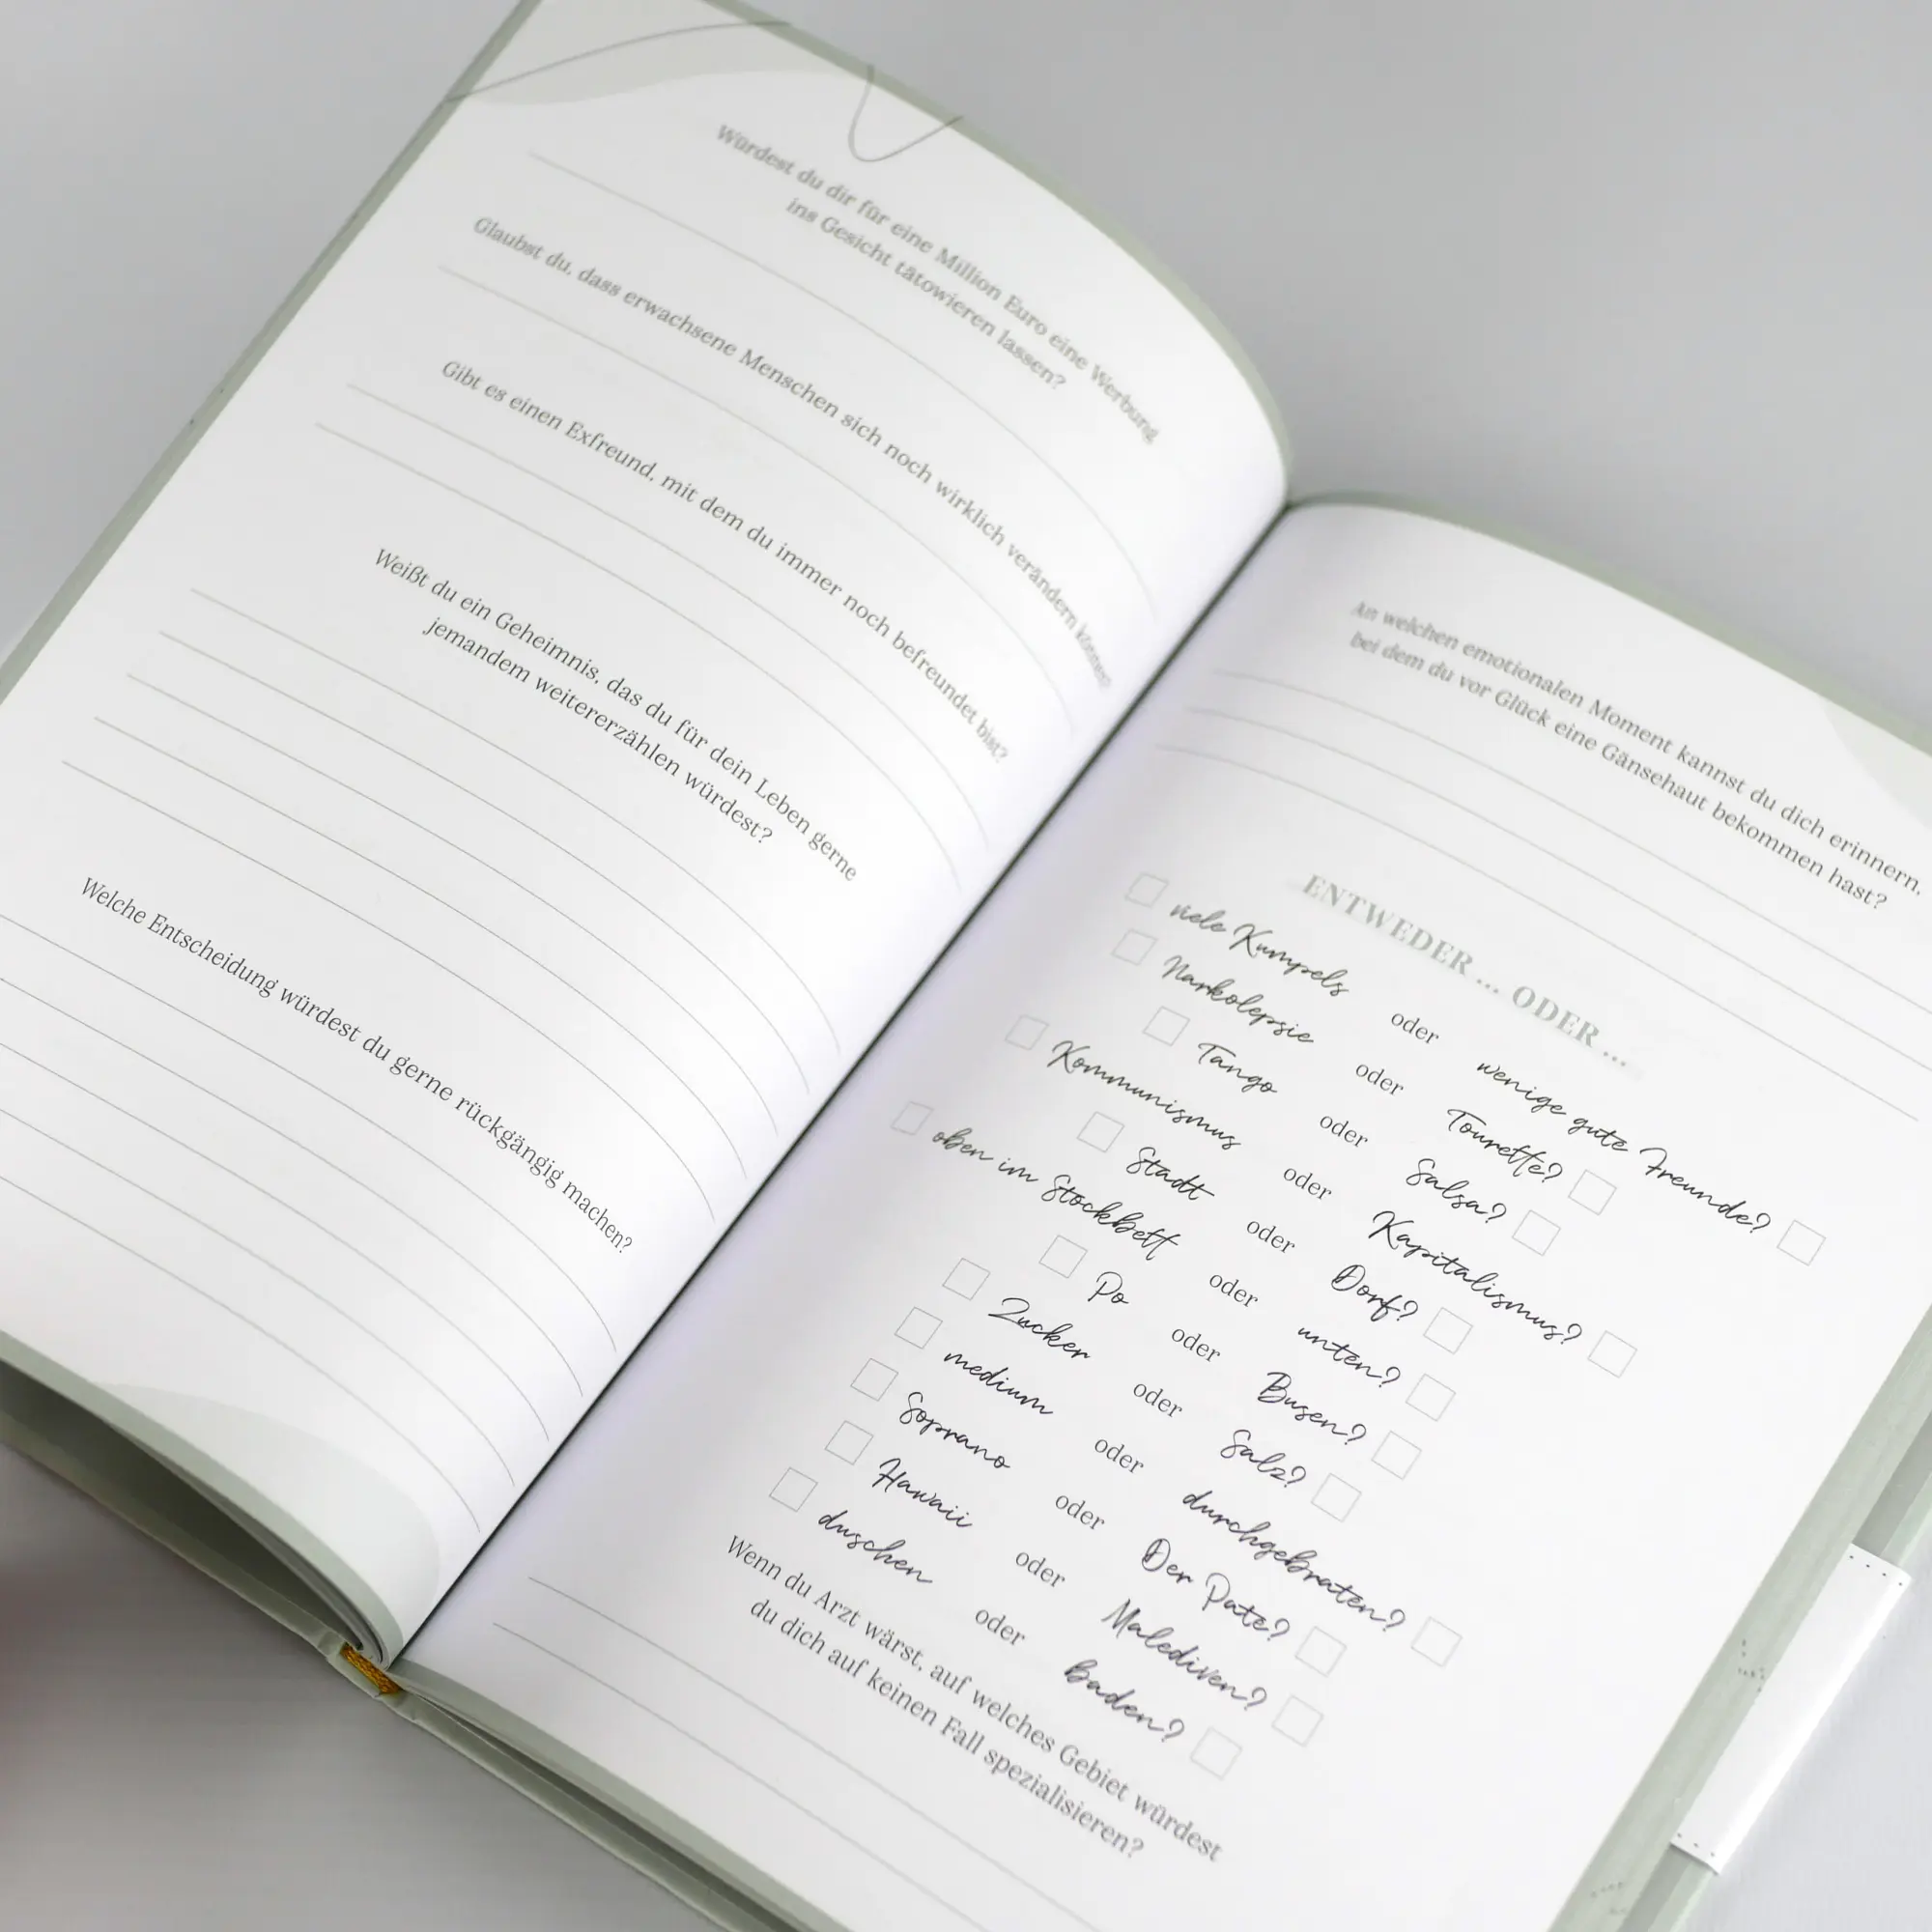 Würdest du dir für eine Million Euro eine Werbung
ins Gesicht tätowieren lassen?
Glaubst du, dass erwachsene Menschen sich noch wirklich verändern können?
Gibt es einen Exfreund, mit dem du immer noch befreundet bist?
Weißt du ein Geheimnis, das du für dein Leben gerne
jemandem weitererzählen würdest?
Welche Entscheidung würdest du gerne rückgängig machen?
An welchen emotionalen Moment kannst du dich erinnern,
bei dem du vor Glück eine Gänsehaut bekommen hast?
ENTWEDER ... ODER ...
viele Kumpels oder wenige gute Freunde?
Narkolepsie oder Tourette?
Tango oder Salsa?
Kommunismus oder Kapitalismus?
Stadt oder Dorf?
oben im Stockbett oder unten?
Po oder Busen?
Zucker oder Salz?
medium oder durchgebraten?
Soprano oder Der Pate?
Hawaii oder Malediven?
duschen oder baden?
Wenn du Arzt wärst, auf welches Gebiet würdest
du dich auf keinen Fall spezialisieren?